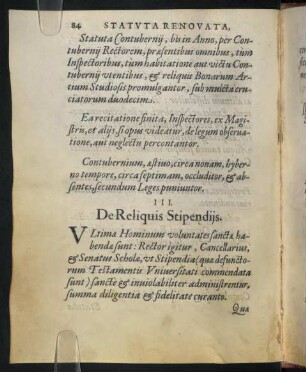 84 STATVTA RENOVATA,
Statuta Contubernij, bis in Anno, per Con-
tubernij Rectorem, præsentibus omnibus, tùm
Inspectoribus, tùm habitatione aut victu Con-
tubernij vtentibus, & reliquis Bonarum Ar-
tium Studiosis promulgantor, sub mulcta cru-
ciatorum duodecim.
Ea recitatione finita, Inspectores, ex Magi-
stris, et alijs, si opus videatur, de legum obserua-
tione, aut neglectu percontantor.
Contubernium, æstiuo, circa nonam, hyber-
no tempore, circa septimam, occluditor, & ab-
sentes, secundum Leges puniuntor.
III.
De Reliquis Stipendijs.
VLtima Hominum voluntates sanctæ ha-
bendæ sunt: Rector igitur, Cancellarius,
& Senatus Scholæ, vt Stipendia (quæ defuncto-
rum Testamentis Vniuersitati commendata
sunt) sanctè & inuiolabiliter administrentur,
summa diligentia & fidelitate curanto.
Qua